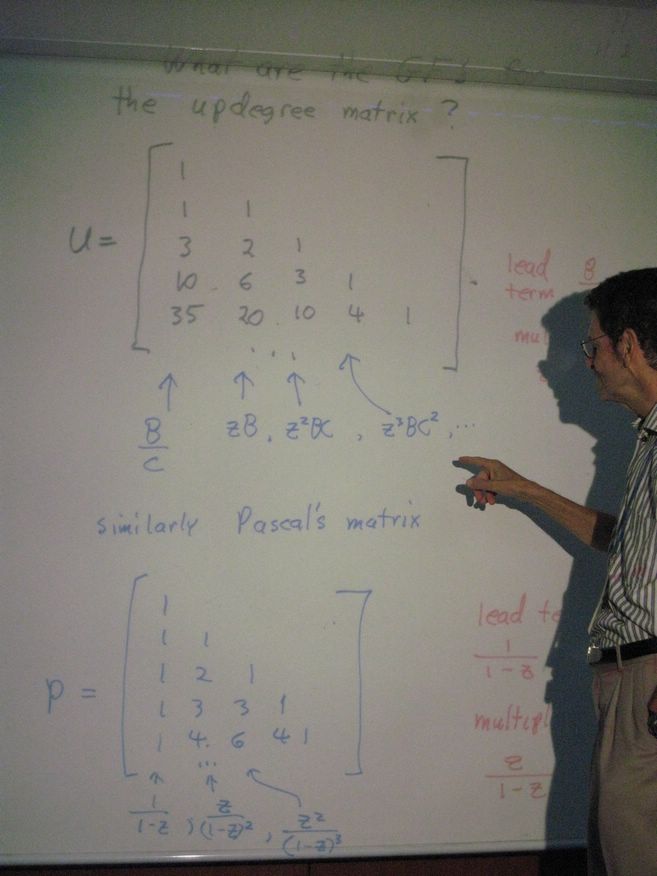 What are the GF's for
the updegree matrix ?
U =
1
1 1
3 2 1
10 6 3 1
35 20 10 4 1
...
B/C zB, z²BC, z³BC², ...
lead B
term
similarly Pascal's matrix
P =
1
1 1
1 2 1
1 3 3 1
1 4 6 4 1
...
1/(1-z), z/(1-z)², z²/(1-z)³
lead
1/(1-z)
z/(1-z)